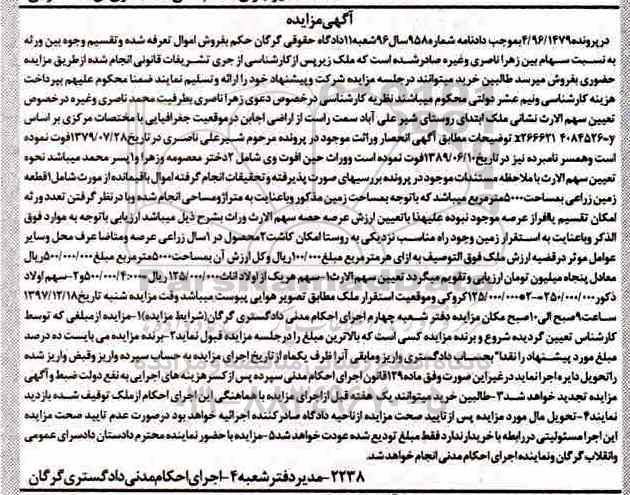 آگهی مزایده
در پرونده ۴/۹۶/۱۴۷۹ بموجب دادنامه شماره ۹۵۸ سال ۹۶ شعبه ۱۱ دادگاه حقوقی گرگان حکم بفروش اموال تعرفه شده و تقسیم وجوه بین ورثه
به نسبت سهام بین زهرا ناصری و غیره صادر شده است که ملک زیر پس از کارشناسی از جری تشریفات قانونی انجام شده از طریق مزایده
حضوری بفروش میرسد طالبین خرید میتوانند در جلسه مزایده شرکت و پیشنهاد خود را ارائه و تسلیم نمایند ضمنا محکوم علیهم بپرداخت
هزینه کارشناسی و نیم عشر دولتی محکوم میباشند نظریه کارشناسی در خصوص دعوی زهرا ناصری بطرفیت محمد ناصری و غیره در خصوص
تعیین سهم الارث نشانی ملک ابتدای روستای شیر علی آباد سمت راست از اراضی اجابن در موقعیت جغرافیایی با مختصات مرکزی بر اساس
x۲۶۶۶۲۱ ۴۰۸۴۵۲۶-y توضیحات مطابق آگهی انحصار وراثت موجود در پرونده مرحوم شیرعلی ناصری در تاریخ ۱۳۷۹/۰۷/۲۸ فوت نموده
است و همسر نامبرده نیز در تاریخ ۱۳۸۹/۰۶/۱۰ فوت نموده است و وراث حین الفوت وی شامل ۲ دختر معصومه و زهرا و ۱ پسر محمد میباشد نحوه
تعیین سهم الارث با ملاحظه مستندات موجود در پرونده بررسیهای صورت پذیرفته و تحقیقات انجام گرفته اموال باقیمانده از مورث شامل ۱ قطعه
زمین زراعی بمساحت ۵۰۰۰ مترمربع میباشد که باتوجه بمساحت زمین مذکور و باعنایت به متراژ و مساحی انجام شده و با در نظر گرفتن تعدد ورثه
امکان تقسیم یا افراز عرصه موجود نبوده علیهذا با تعیین ارزش عرصه حصه سهم الارث وراث بشرح ذیل میباشد ارزیابی باتوجه به موارد فوق
الذکر و باعنایت به استقرار زمین وجود راه مناسب نزدیکی به روستا امکان کاشت ۲ محصول در ۱ سال زراعی عرصه و متقاضا عرف محل و سایر
عوامل موثر در قضیه ارزش ملک فوق التوصیف به ازای هر مترمربع مبلغ ۱۰۰/۰۰۰ ریال و کل ارزش آن بمساحت ۵۰۰۰ مترمربع مبلغ ۵۰۰/۰۰۰/۰۰۰ ریال
معادل پنجاه میلیون تومان ارزیابی و تقویم میگردد تعیین سهم الارث ۱-سهم هر یک از اولاد اناث ۱۲۵/۰۰۰/۰۰۰ ریال ۴=۵۰۰/۰۰۰/۰۰۰ و ۲-سهم اولاد
ذکور ۲۵۰/۰۰۰/۰۰۰=۲*۱۲۵/۰۰۰/۰۰۰ کروکی و موقعیت استقرار ملک مطابق تصویر هوایی پیوست میباشد وقت مزایده شنبه تاریخ ۱۳۹۷/۱۲/۱۸
ساعت ۹ صبح الی ۱۰ صبح مکان مزایده دفتر شعبه چهارم اجرای احکام مدنی دادگستری گرگان (شرایط مزایده) ۱-مزایده از مبلغی که توسط
کارشناس تعیین گردیده شروع و برنده مزایده کسی است که بالاترین مبلغ را در جلسه مزایده قبول نماید ۲-برنده مزایده می بایست ده درصد
مبلغ مورد پیشنهاد را نقدا" بحساب دادگستری واریز و مابقی آنرا ظرف یکماه از تاریخ اجرای مزایده به حساب سپرده واریز و قبض واریز شده
را تحویل دایره اجرا نماید در غیر این صورت وفق ماده ۱۲۹ قانون اجرای احکام مدنی سپرده پس از کسر هزینه های اجرایی به نفع دولت ضبط و آگهی
مزایده تجدید خواهد شد ۳-طالبین خرید میتوانند یک هفته قبل از اجرای مزایده با هماهنگی این اجرای احکام از ملک توقیف شده بازدید
نمایند ۴-تحویل مال مورد مزایده پس از تایید صحت مزایده از ناحیه دادگاه صادر کننده اجرائیه خواهد بود در صورت عدم تایید صحت مزایده
این اجرا مسئولیتی در رابطه با خریدار ندارد فقط مبلغ تودیع شده عودت خواهد شد ۵-مزایده با حضور نماینده محترم دادستان دادسرای عمومی
و انقلاب گرگان و نماینده اجرای احکام مدنی انجام خواهد شد.
۲۲۳۸-مدیر دفتر شعبه ۴-اجرای احکام مدنی دادگستری گرگان